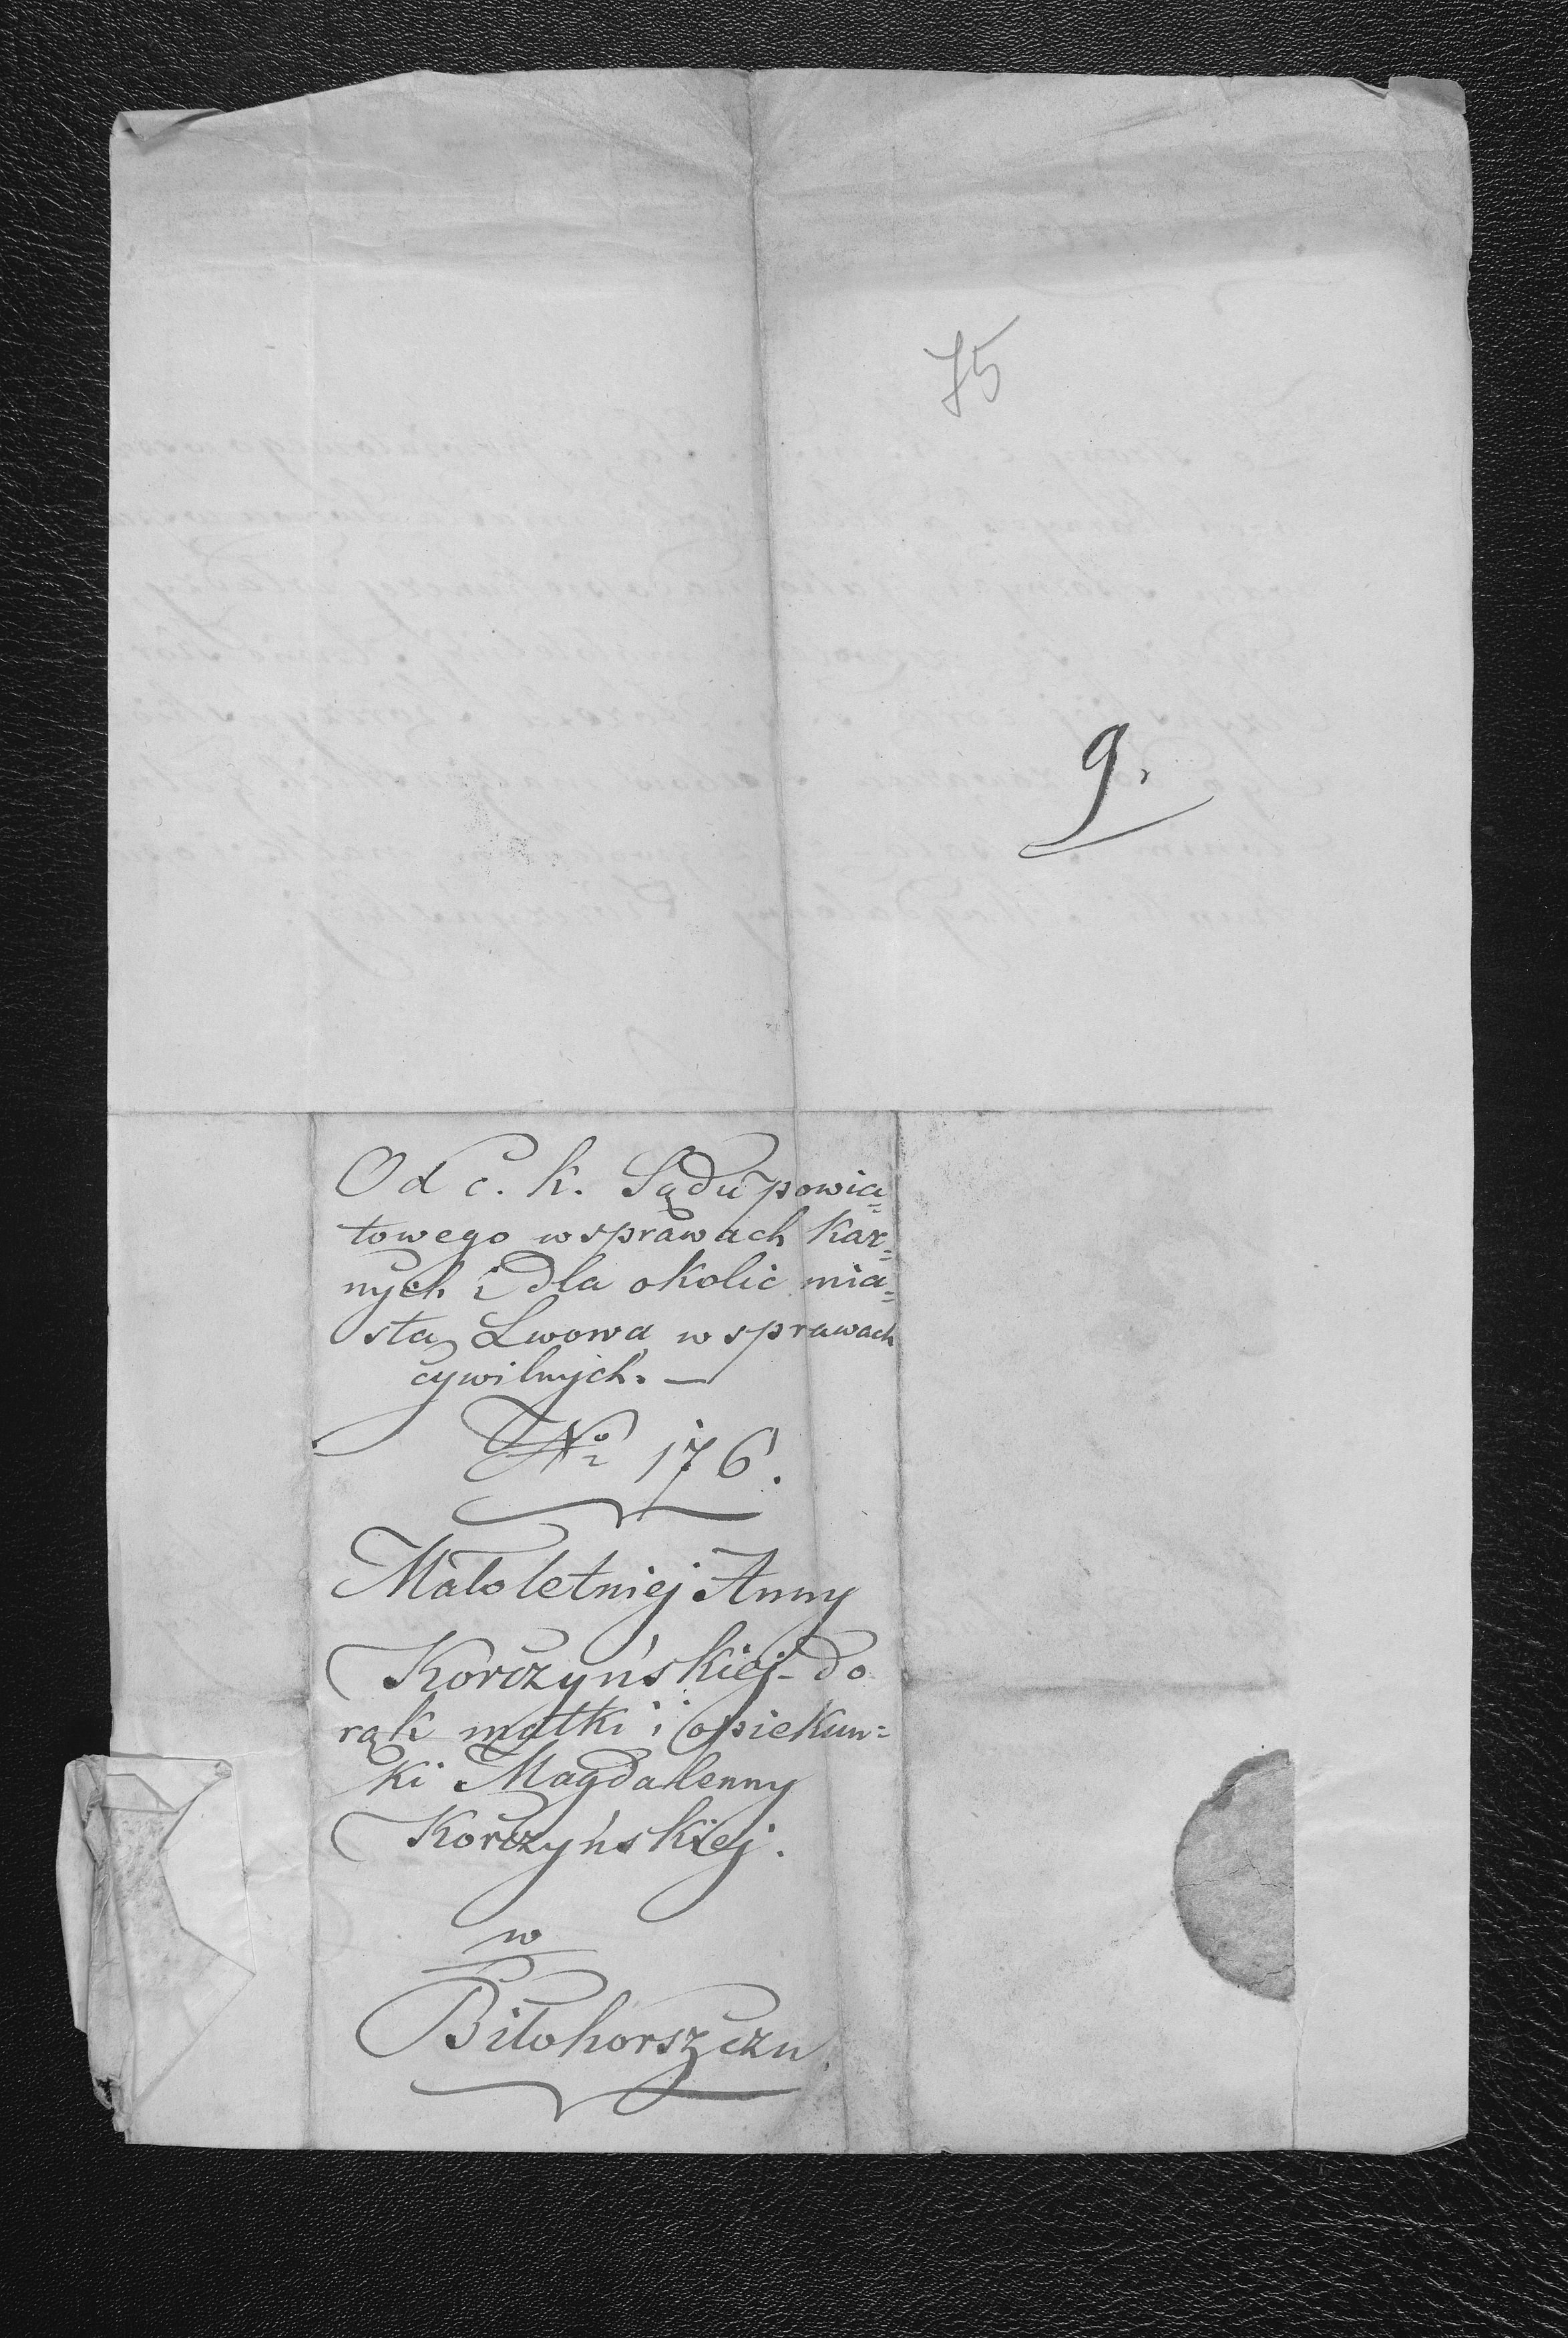 75
9.
Od c. k. Sądu powia=
towego w sprawach Kar=
nych i dla okolic mia=
sta Lwowa w sprawach
cywilnych. —
No 176.
Małoletniej Anny
Korczyńskiej - do
rąk matki i opiekun=
ki Magdalenny
Korczyńskiej.
w
Biłohorszczu.